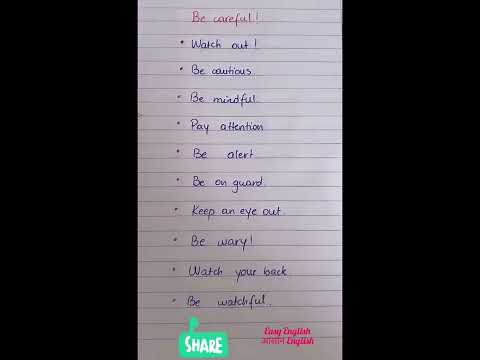 Be careful!
• Watch out!
• Be cautious.
• Be mindful.
• Pay attention
• Be alert
• Be on guard.
• Keep an eye out.
• Be wary!
• Watch your back
• Be watchful.
SHARE
Easy English
आसान English